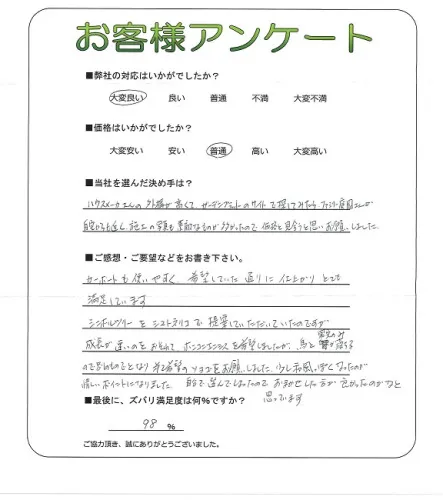 お客様アンケート
■弊社の対応はいかがでしたか？
大変良い 良い 普通 不満 大変不満
■価格はいかがでしたか？
大変安い 安い 普通 高い 大変高い
■当社を選んだ決め手は？
ハウスメーカーさんの外構が高くて、ガーデンプラットのサイトで探してみたら、
自宅からも近く、施工の写真も素敵なものが多かったので価格も見合うと思いお願いしました。
■ご感想・ご要望などをお書き下さい。
カーポートも使いやすく、希望していた通りに仕上がりとても
満足しています
シンボルツリーをシマトネリコで提案していただいていたのですが
成長が速いのをおそれて、ホンコンエンシスを希望しましたが、
お願いしました。少し和風っぽくなったのが
悲しいポイントになりました。自分で選んでしまったのでおまかせした方が良かったのかなと
思っています
■最後に、ズバリ満足度は何％ですか？
98 ％
ご協力頂き、誠にありがとうございました。